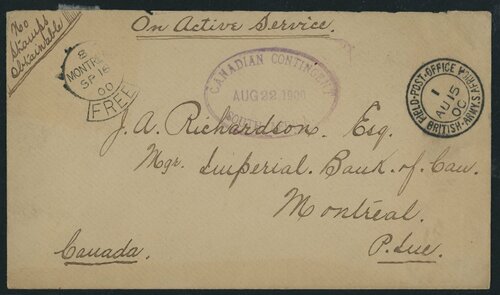 No
Stamps
Obtainable
On Active Service.
8
MONTREAL
SP 16
00
FREE
CANADIAN CONTINGENT
AUG 22 1900
SOUTH
FIELD-POST-OFFICE
1
AU 15
00
BRITISH-ARMY-S.AFRICA
J. A. Richardson. Esq.
Mgr. Imperial. Bank. of Can.
Montréal.
Canada.
P. Que.